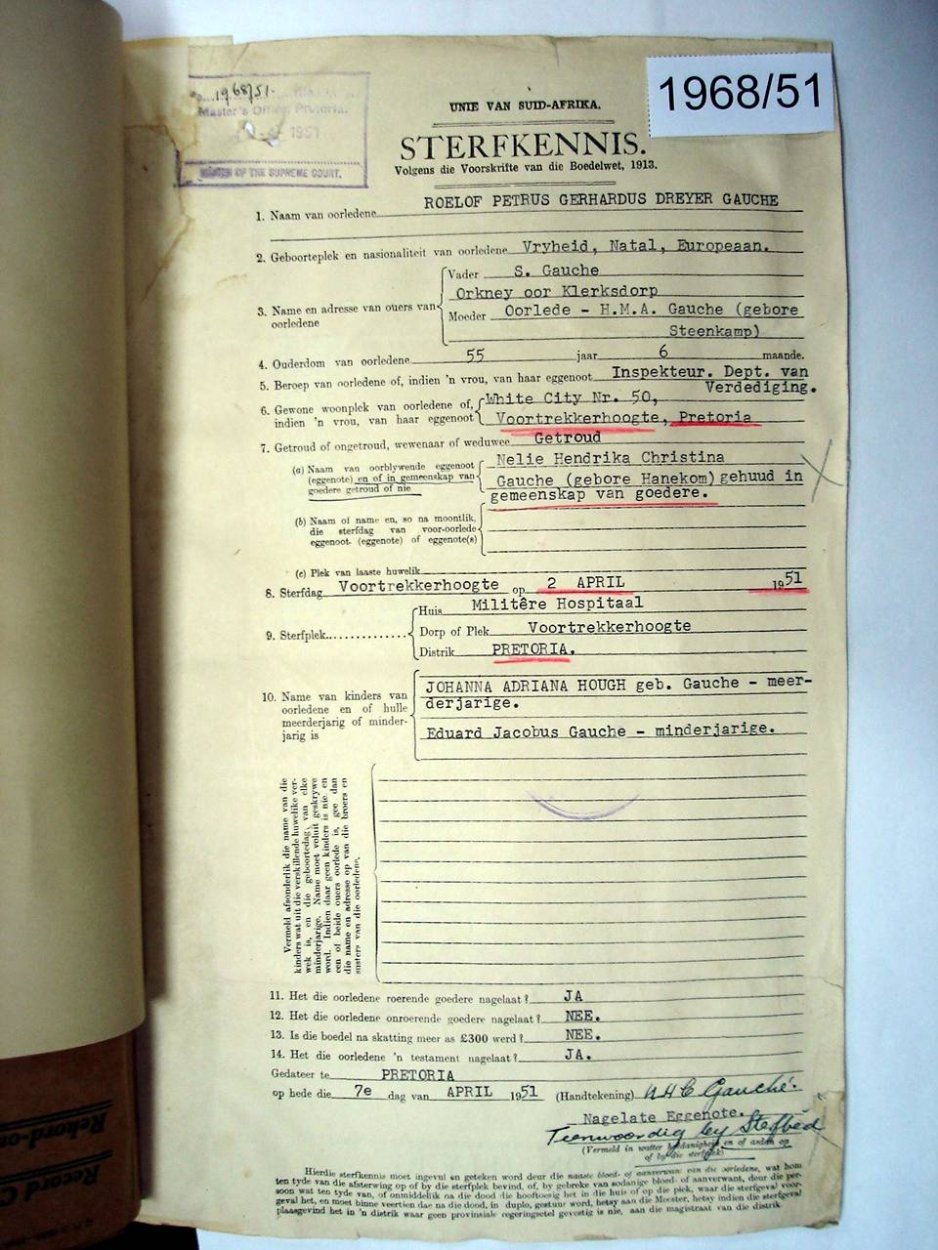 1968/51.
Master's Office, Pretoria.
1951
MASTER OF THE SUPREME COURT.
1968/51
UNIE VAN SUID-AFRIKA.
STERFKENNIS.
Volgens die Voorskrifte van die Boedelwet, 1913.
1. Naam van oorledene ROELOF PETRUS GERHARDUS DREYER GAUCHE
2. Geboorteplek en nasionaliteit van oorledene Vryheid, Natal, Europeaan.
3. Name en adresse van ouers van oorledene
Vader S. Gauche
Orkney oor Klerksdorp
Moeder Oorlede - H.M.A. Gauche (gebore
Steenkamp)
4. Ouderdom van oorledene 55 jaar 6 maande.
5. Beroep van oorledene of, indien 'n vrou, van haar eggenoot Inspekteur. Dept. van
Verdediging.
6. Gewone woonplek van oorledene of, White City Nr. 50,
indien 'n vrou, van haar eggenoot Voortrekkerhoogte, Pretoria
7. Getroud of ongetroud, wewenaar of weduwee Getroud
(a) Naam van oorblywende eggenoot
(eggenote) en of in gemeenskap van
goedere getroud of nie
Nelie Hendrika Christina
Gauche (gebore Hanekom) gehuud in
gemeenskap van goedere.
(b) Naam of name en, so na moontlik,
die sterfdag van voor-oorlede
eggenoot (eggenote) of eggenote(s)
(c) Plek van laaste huwelik
8. Sterfdag Voortrekkerhoogte op 2 APRIL 1951
9. Sterfplek
Huis Militêre Hospitaal
Dorp of Plek Voortrekkerhoogte
Distrik PRETORIA.
10. Name van kinders van
oorledene en of hulle
meerderjarig of minder-
jarig is
JOHANNA ADRIANA HOUGH geb. Gauche - meer-
derjarige.
Eduard Jacobus Gauche - minderjarige.
Vermeld afsonderlik die name van die
kinders wat uit die verskillende huwelike ver-
wek is, en die geboortedag van elke
minderjarige. Name moet voluit geskrywe
word. Indien daar geen kinders is nie en
een of beide ouers oorlede is, gee dan
die name en adresse op van die broers en
susters van die oorledene.
11. Het die oorledene roerende goedere nagelaat? JA
12. Het die oorledene onroerende goedere nagelaat? NEE.
13. Is die boedel na skatting meer as £300 werd? NEE.
14. Het die oorledene 'n testament nagelaat? JA.
Gedateer te PRETORIA
op hede die 7e dag van APRIL 1951 (Handtekening) NHC Gauché.
Nagelate Eggenote.
Teenwoordig by Sterfbed
(Vermeld in watter hoedanigheid en of anders op
of by die sterfplek)
Hierdie sterfkennis moet ingevul en geteken word deur die naaste bloed- of aanverwant van die oorledene, wat hom
ten tyde van die afsterwing op of by die sterfplek bevind, of, by gebreke van sodanige bloed- of aanverwant, deur die per-
soon wat ten tyde van, of onmiddelik na die dood die hooftoesig het in die huis of op die plek, waar die sterfgeval voor-
geval het, en moet binne veertien dae na die dood, in duplo, gestuur word, hetsy aan die Meester, hetsy indien die sterfgeval
plaasgevind het in 'n distrik waar geen provinsiale regeringsetel gevestig is nie, aan die magistraat van die distrik
Rekord-o
Record C